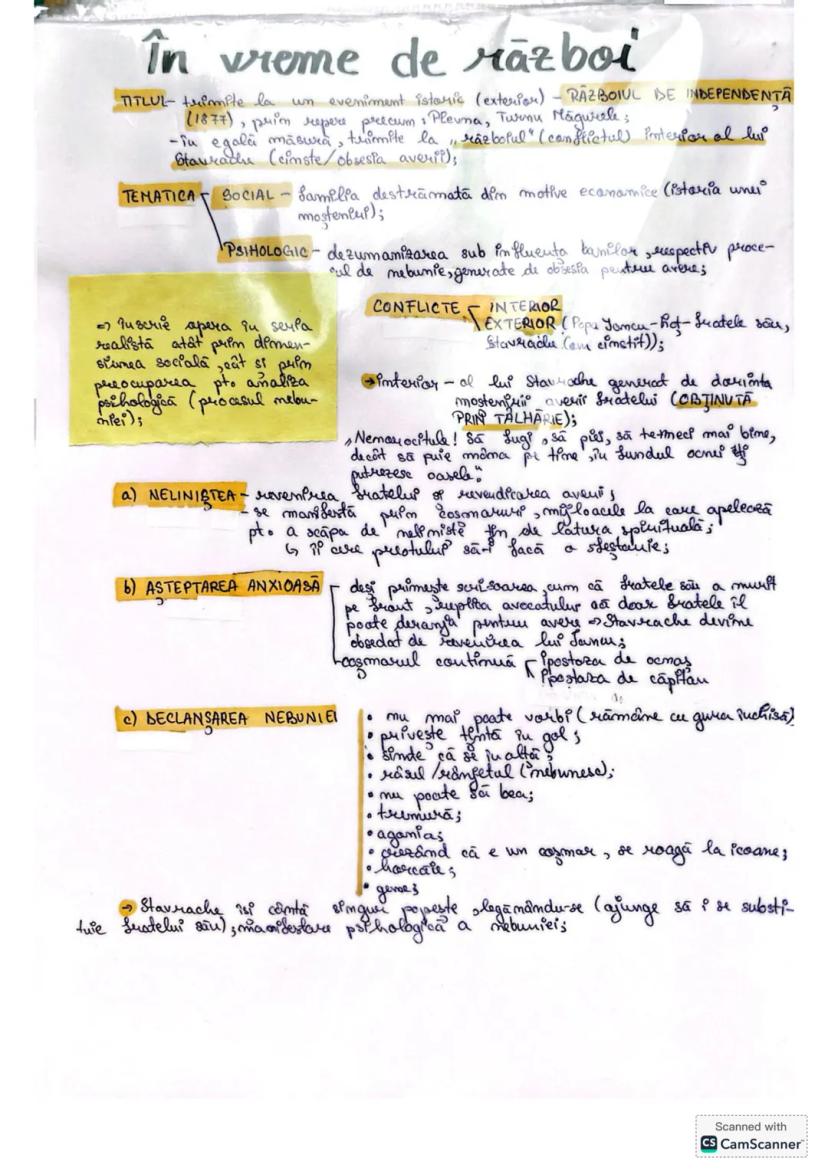 În vreme de război
TITLUL- trimite la un eveniment istoric (exterior) - RĂZBOIUL DE INDEPENDENȚĂ
(1877), prin repere precum: Plevna, Turnu Măgurele;
-în egală măsură, trimite la „războiul" (conflictul) interior al lui
Stavrache (cinste/obsesia averii);
TEMATICA SOCIAL - familia destrămată din motive economice (istoria unei
moșteniri);
PSIHOLOGIC - dezumanizarea sub influența banilor, respectiv proce-
sul de nebunie, generate de obsesia pentru avere;
=> înscrie opera în seria
realistă atât prin dimen-
siunea socială, cât și prin
preocuparea pt. analiza
psihologică (procesul nebu-
niei);
CONFLICTE INTERIOR
EXTERIOR (Popa Iancu-hoț-fratele său,
Stavrache (om cinstit));
→ interior - al lui Stavrache generat de dorința
moștenirii averii fratelui (OBȚINUTĂ
PRIN TÂLHĂRIE);
„Nenorocitule! Să fugi, să pieri, să te neci mai bine,
decât să puie mâna pe tine, în fundul ocnei îți
putrezesc oasele."
a) NELINIȘTEA - revenirea fratelui și revendicarea averii;
- se manifestă prin coșmaruri, mijloacele la care apelează
pt. a scăpa de neliniște țin de latura spirituală;
↳ îi cere preotului să-i facă o sfeștanie;
b) AȘTEPTAREA ANXIOASĂ deși primește scrisoarea, cum că fratele său a murit
pe front, replica avocatului că doar fratele îl
poate deranja pentru avere => Stavrache devine
obsedat de revenirea lui Iancu;
coșmarul continuă ipostaza de ocnaș
ipostaza de căpitan
c) DECLANȘAREA NEBUNIEI • nu mai poate vorbi (rămâne cu gura închisă)
• privește țintă în gol;
• simte că se înalță;
• râsul/rânjetul (nebunesc);
• nu poate să bea;
• tremură;
• agonia;
• crezând că e un coșmar, se roagă la icoane;
• horcăie;
• geme;
→ Stavrache își cântă singur popește, legănându-se (ajunge să i se substi-
tuie fratelui său); manifestare psihologică a nebuniei;
Scanned with
CS CamScanner